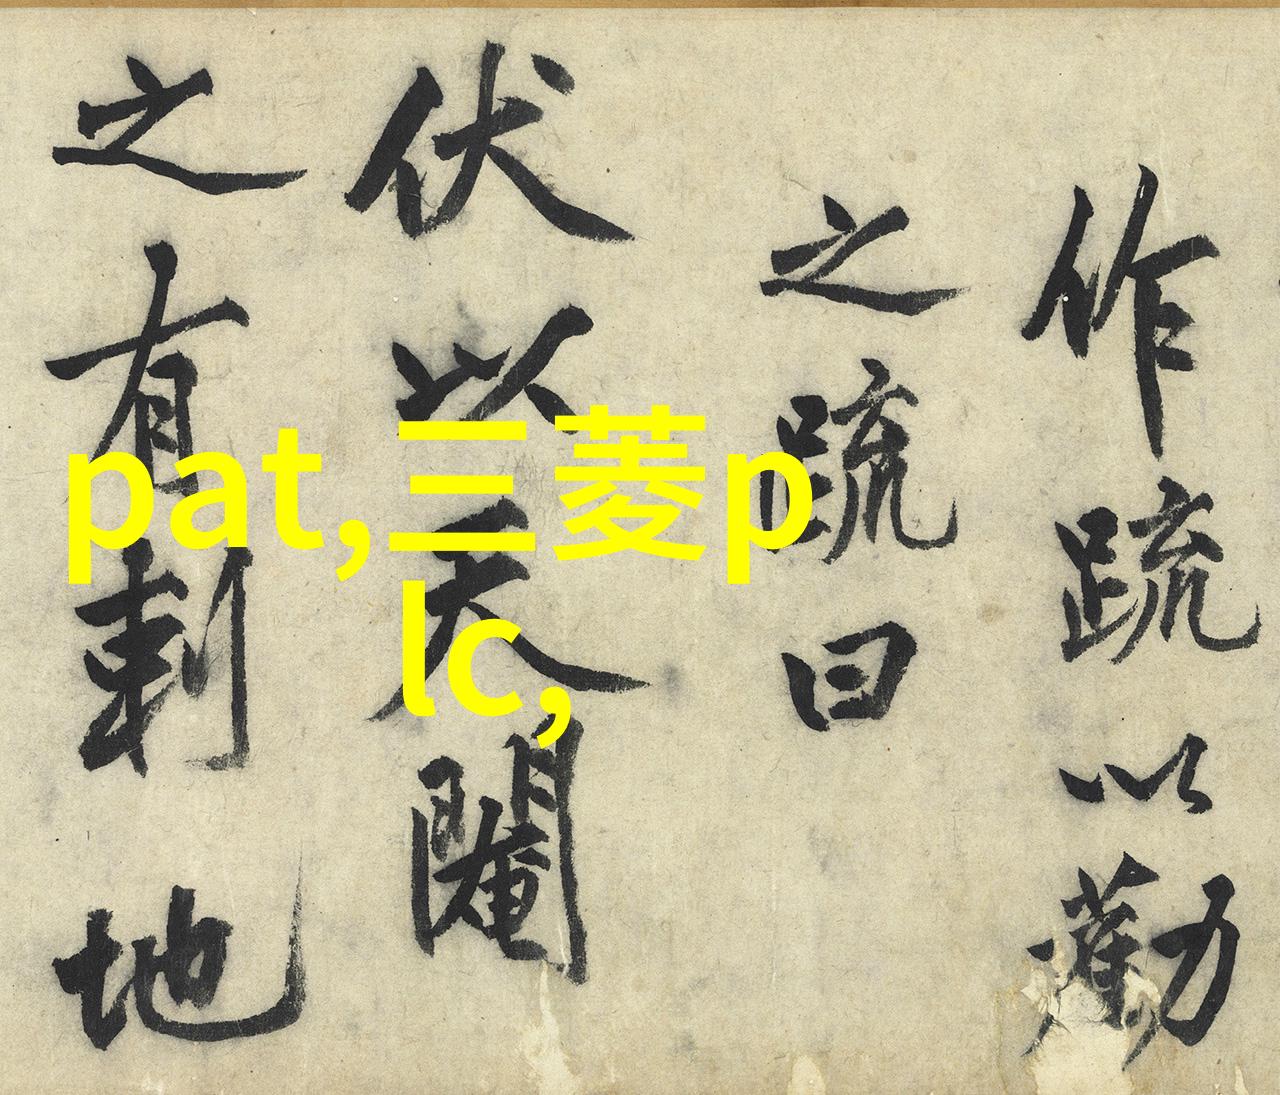 作疏以勸
之疏曰
伏以天閹
之有刺地
pat,三菱p
lc,